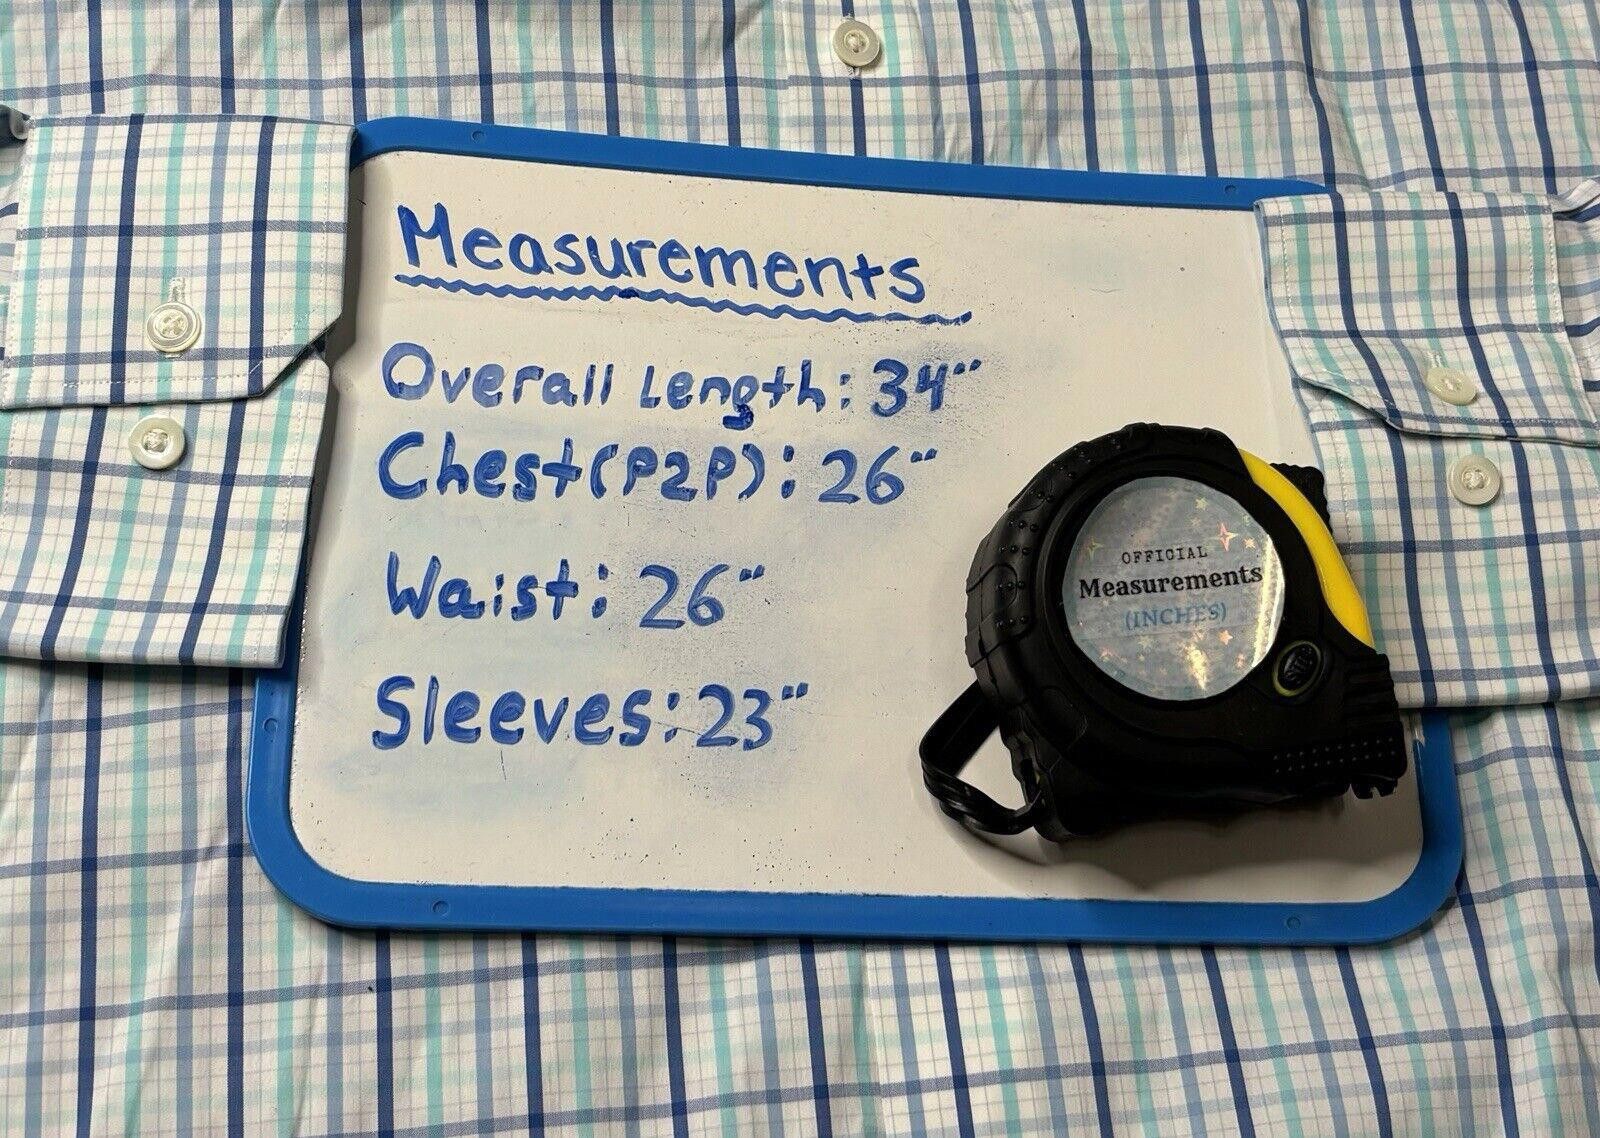 Measurements
Overall Length: 34"
Chest(P2P): 26"
Waist: 26"
Sleeves: 23"
OFFICIAL
Measurements
(INCHES)